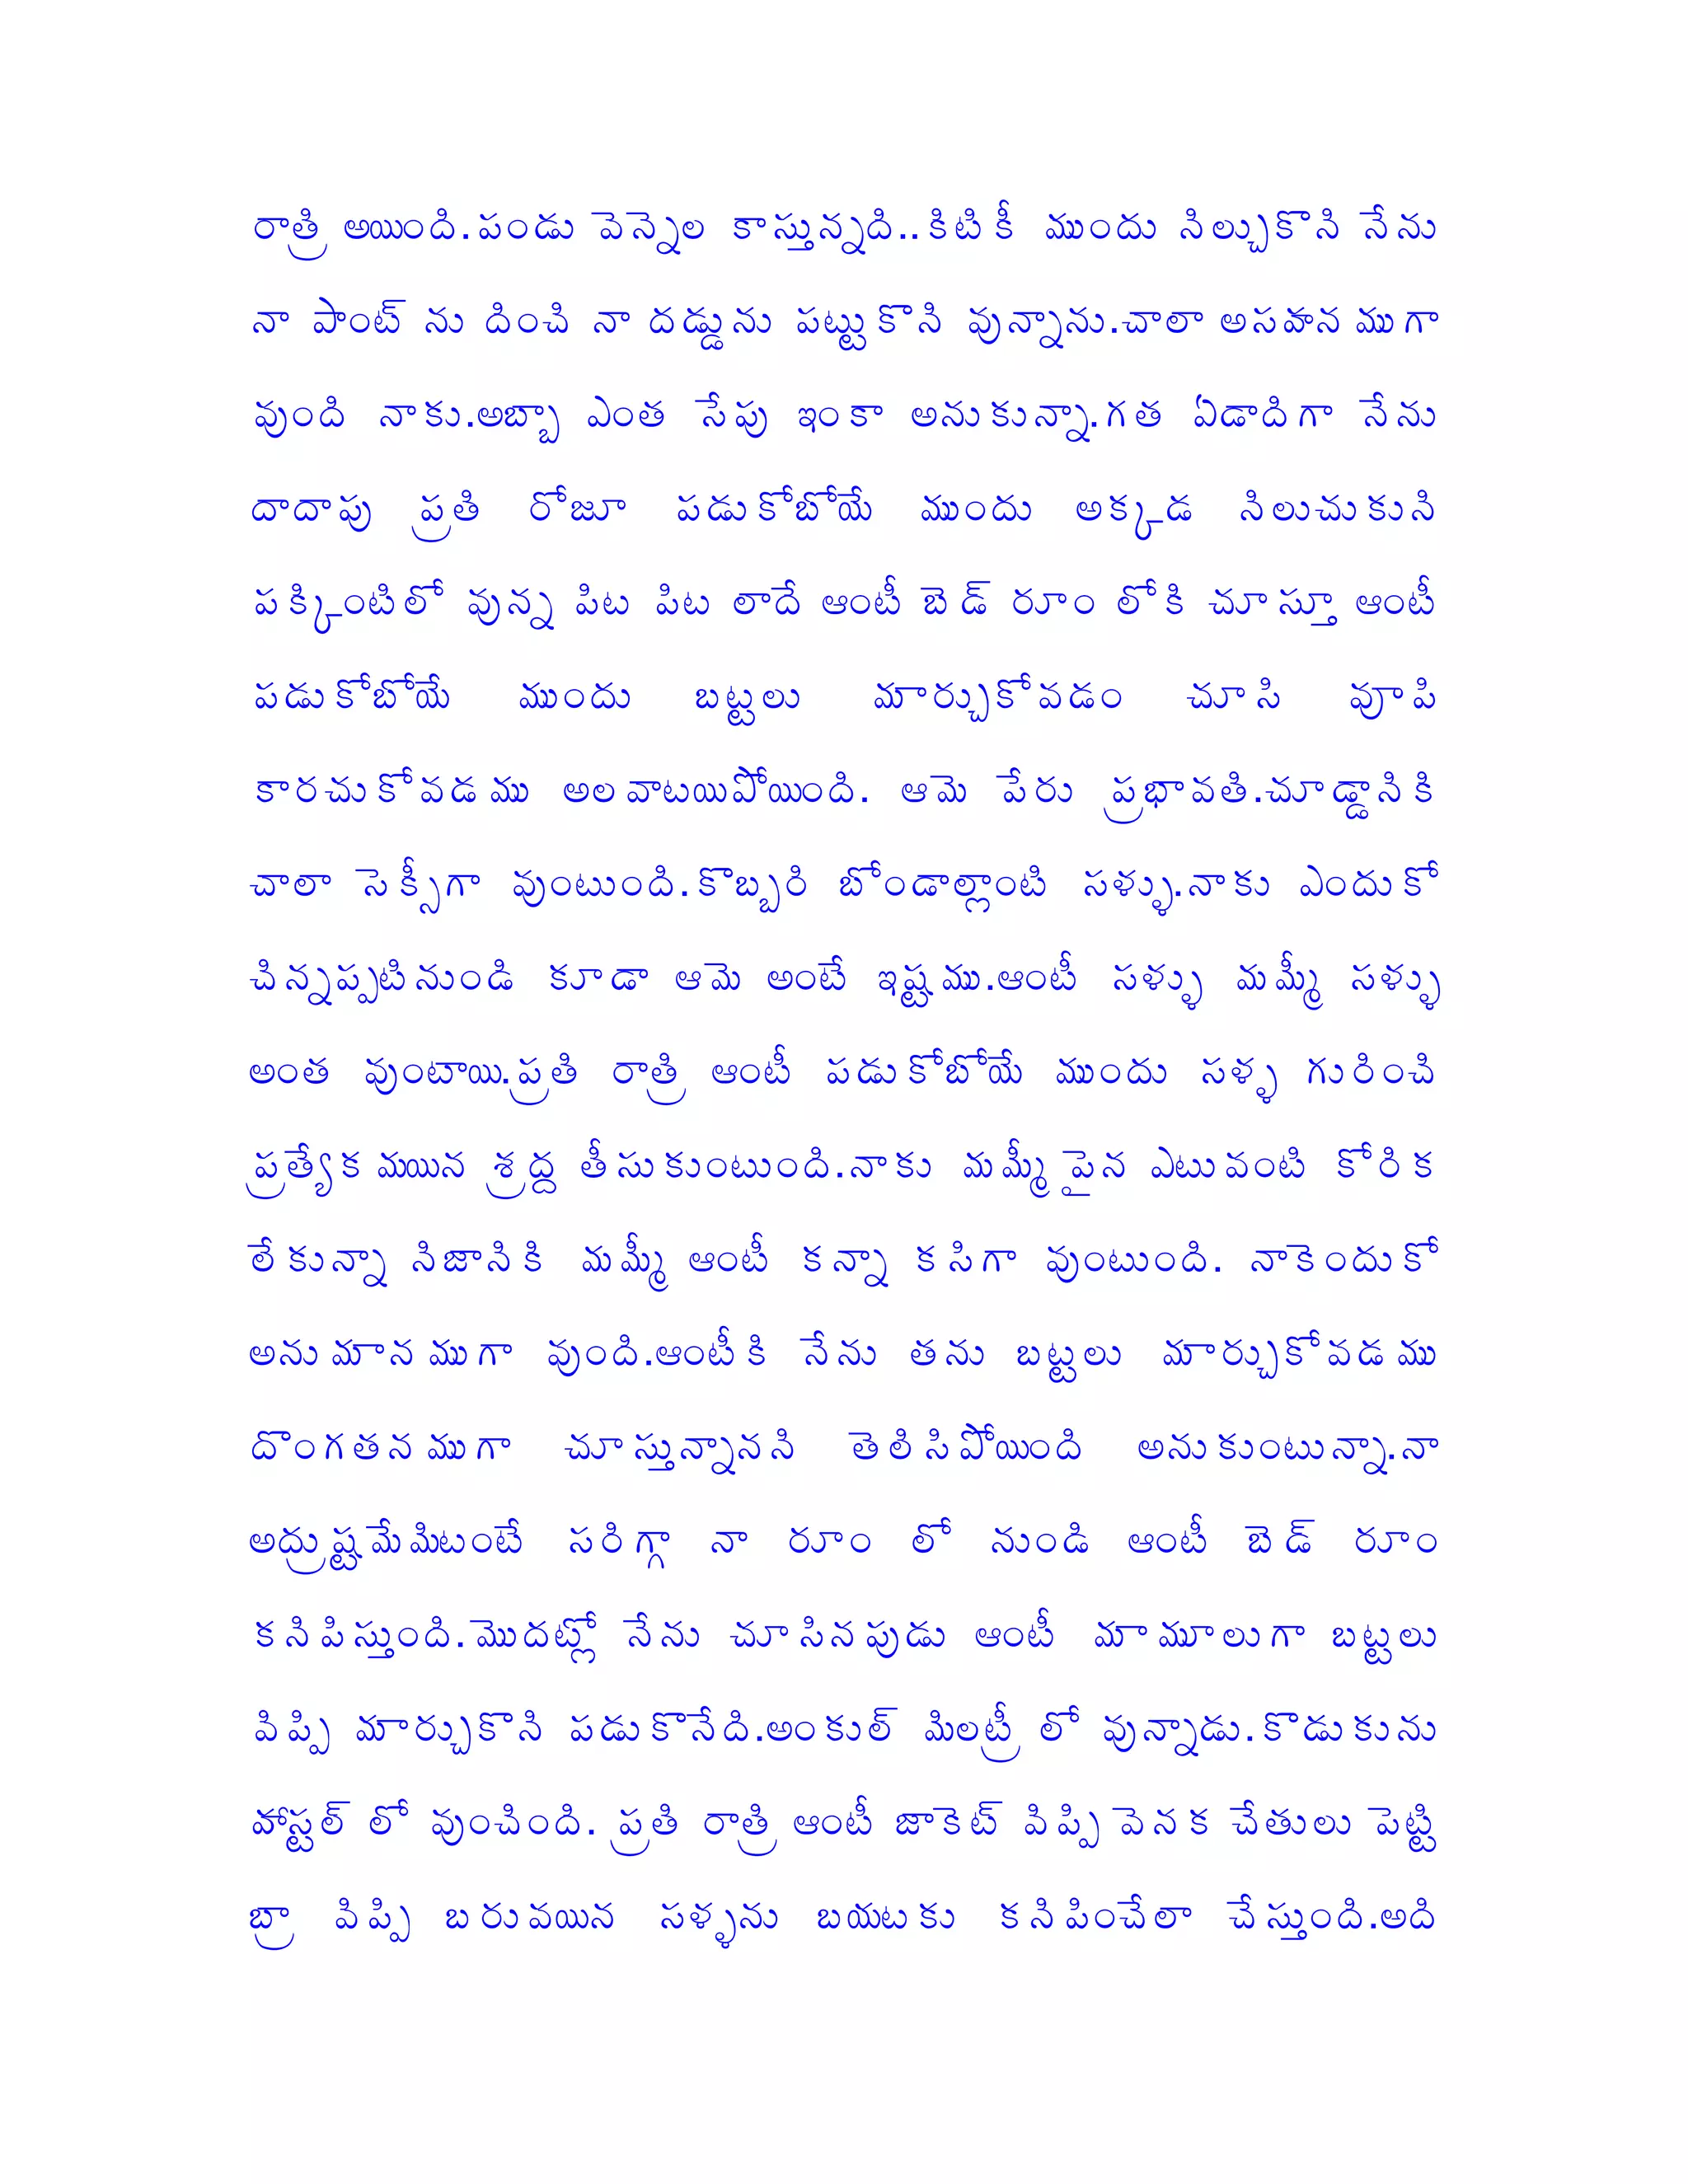 రాత్రి అయింది.పండు వెన్నెల కాస్తున్నది..కిటికీ ముందు నిల్చుకొని నేను
నా పాంట్ ను దించి నా దడ్డును పట్టుకొని వున్నాను.చాలా అసహనముగా
వుంది నాకు.అబ్బా ఎంత సేపు ఇంకా అనుకున్నా.గత ఏడాదిగా నేను
దాదాపు ప్రతి రోజూ పడుకోబోయే ముందు అక్కడ నిలుచుకుని
పక్కింటిలో వున్న పిట పిట లాదే ఆంటీ బెడ్ రూం లోకి చూస్తూ ఆంటీ
పడుకోబోయే ముందు బట్టలు మార్చుకోవడం చూసి వూపి
కారచుకోవడము అలవాటయిపోయింది. ఆమె పేరు ప్రభావతి.చూడ్డానికి
చాలా సెక్సీగా వుంటుంది.కొబ్బరి బోండాల్లాంటి సళ్ళు.నాకు ఎందుకో
చిన్నప్పటినుండి కూడా ఆమె అంటే ఇష్టము.ఆంటీ సళ్ళు మమ్మీ సళ్ళు
అంత వుంటాయి.ప్రతి రాత్రి ఆంటీ పడుకోబోయే ముందు సళ్ళ గురించి
ప్రత్యేకమయిన శ్రద్ద తీసుకుంటుంది.నాకు మమ్మీ పైన ఎటువంటి కోరిక
లేకున్నా నిజానికి మమ్మీ ఆంటీ కన్నా కసిగా వుంటుంది. నాకెందుకో
అనుమానముగా వుంది.ఆంటీకి నేను తను బట్టలు మార్చుకోవడము
దొంగతనముగా చూస్తున్నానని తెలిసిపోయింది అనుకుంటున్నా.నా
అద్రుష్టమేమిటంటే సరిగ్గా నా రూం లో నుండి ఆంటీ బెడ్ రూం
కనిపిస్తుంది.మొదట్లో నేను చూసినపుడు ఆంటీ మామూలుగా బట్టలు
విప్పి మార్చుకొని పడుకొనేది.అంకుల్ మిలట్రీ లో వున్నాడు.కొడుకును
హాస్టల్ లో వుంచింది. ప్రతి రాత్రి ఆంటీ జాకెట్ విప్పి వెనక చేతులు పెట్టి
బ్రా విప్పి బరువయిన సళ్ళను బయటకు కనిపించేలా చేస్తుంది.అది